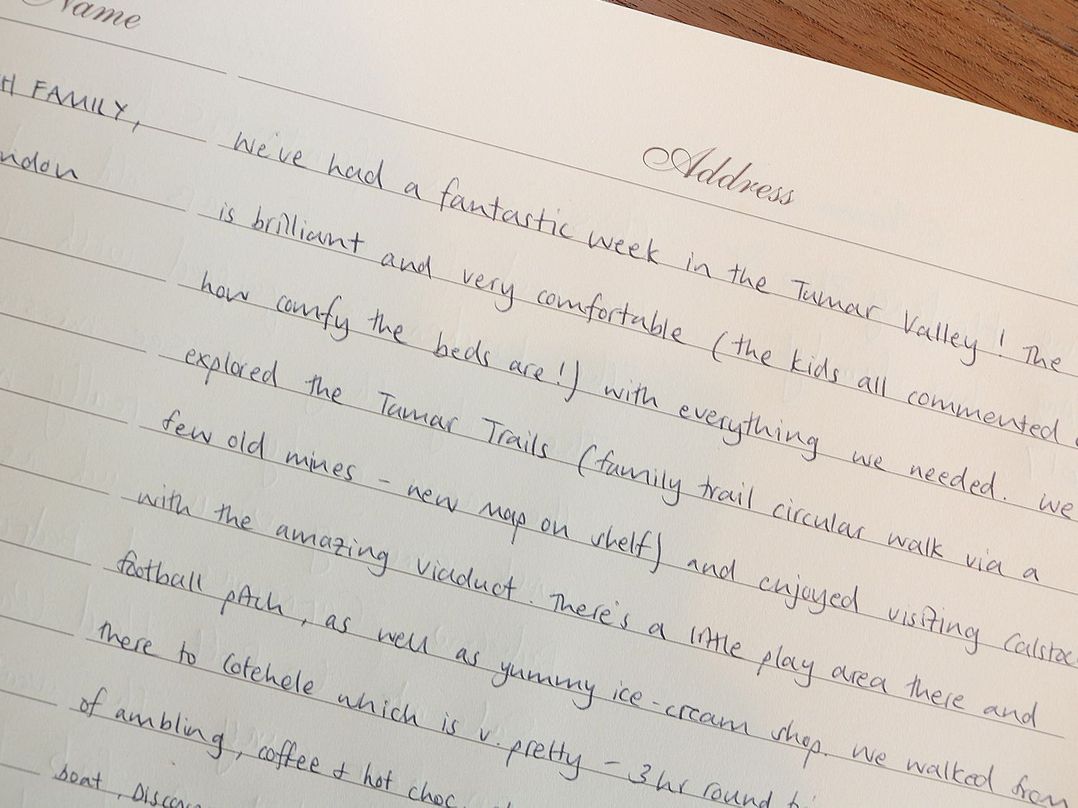 Name
Address
FAMILY,
We've had a fantastic week in the Tamar Valley! The
is brilliant and very comfortable (the kids all commented
how comfy the beds are!) with everything we needed. We
explored the Tamar Trails (family trail circular walk via a
few old mines - new map on shelf) and enjoyed visiting
with the amazing viaduct. There's a little play area there and
football pitch, as well as yummy ice-cream shop. We walked from
there to Cotehele which is v. pretty - 3hr round
of ambling, coffee & hot choc
boat,